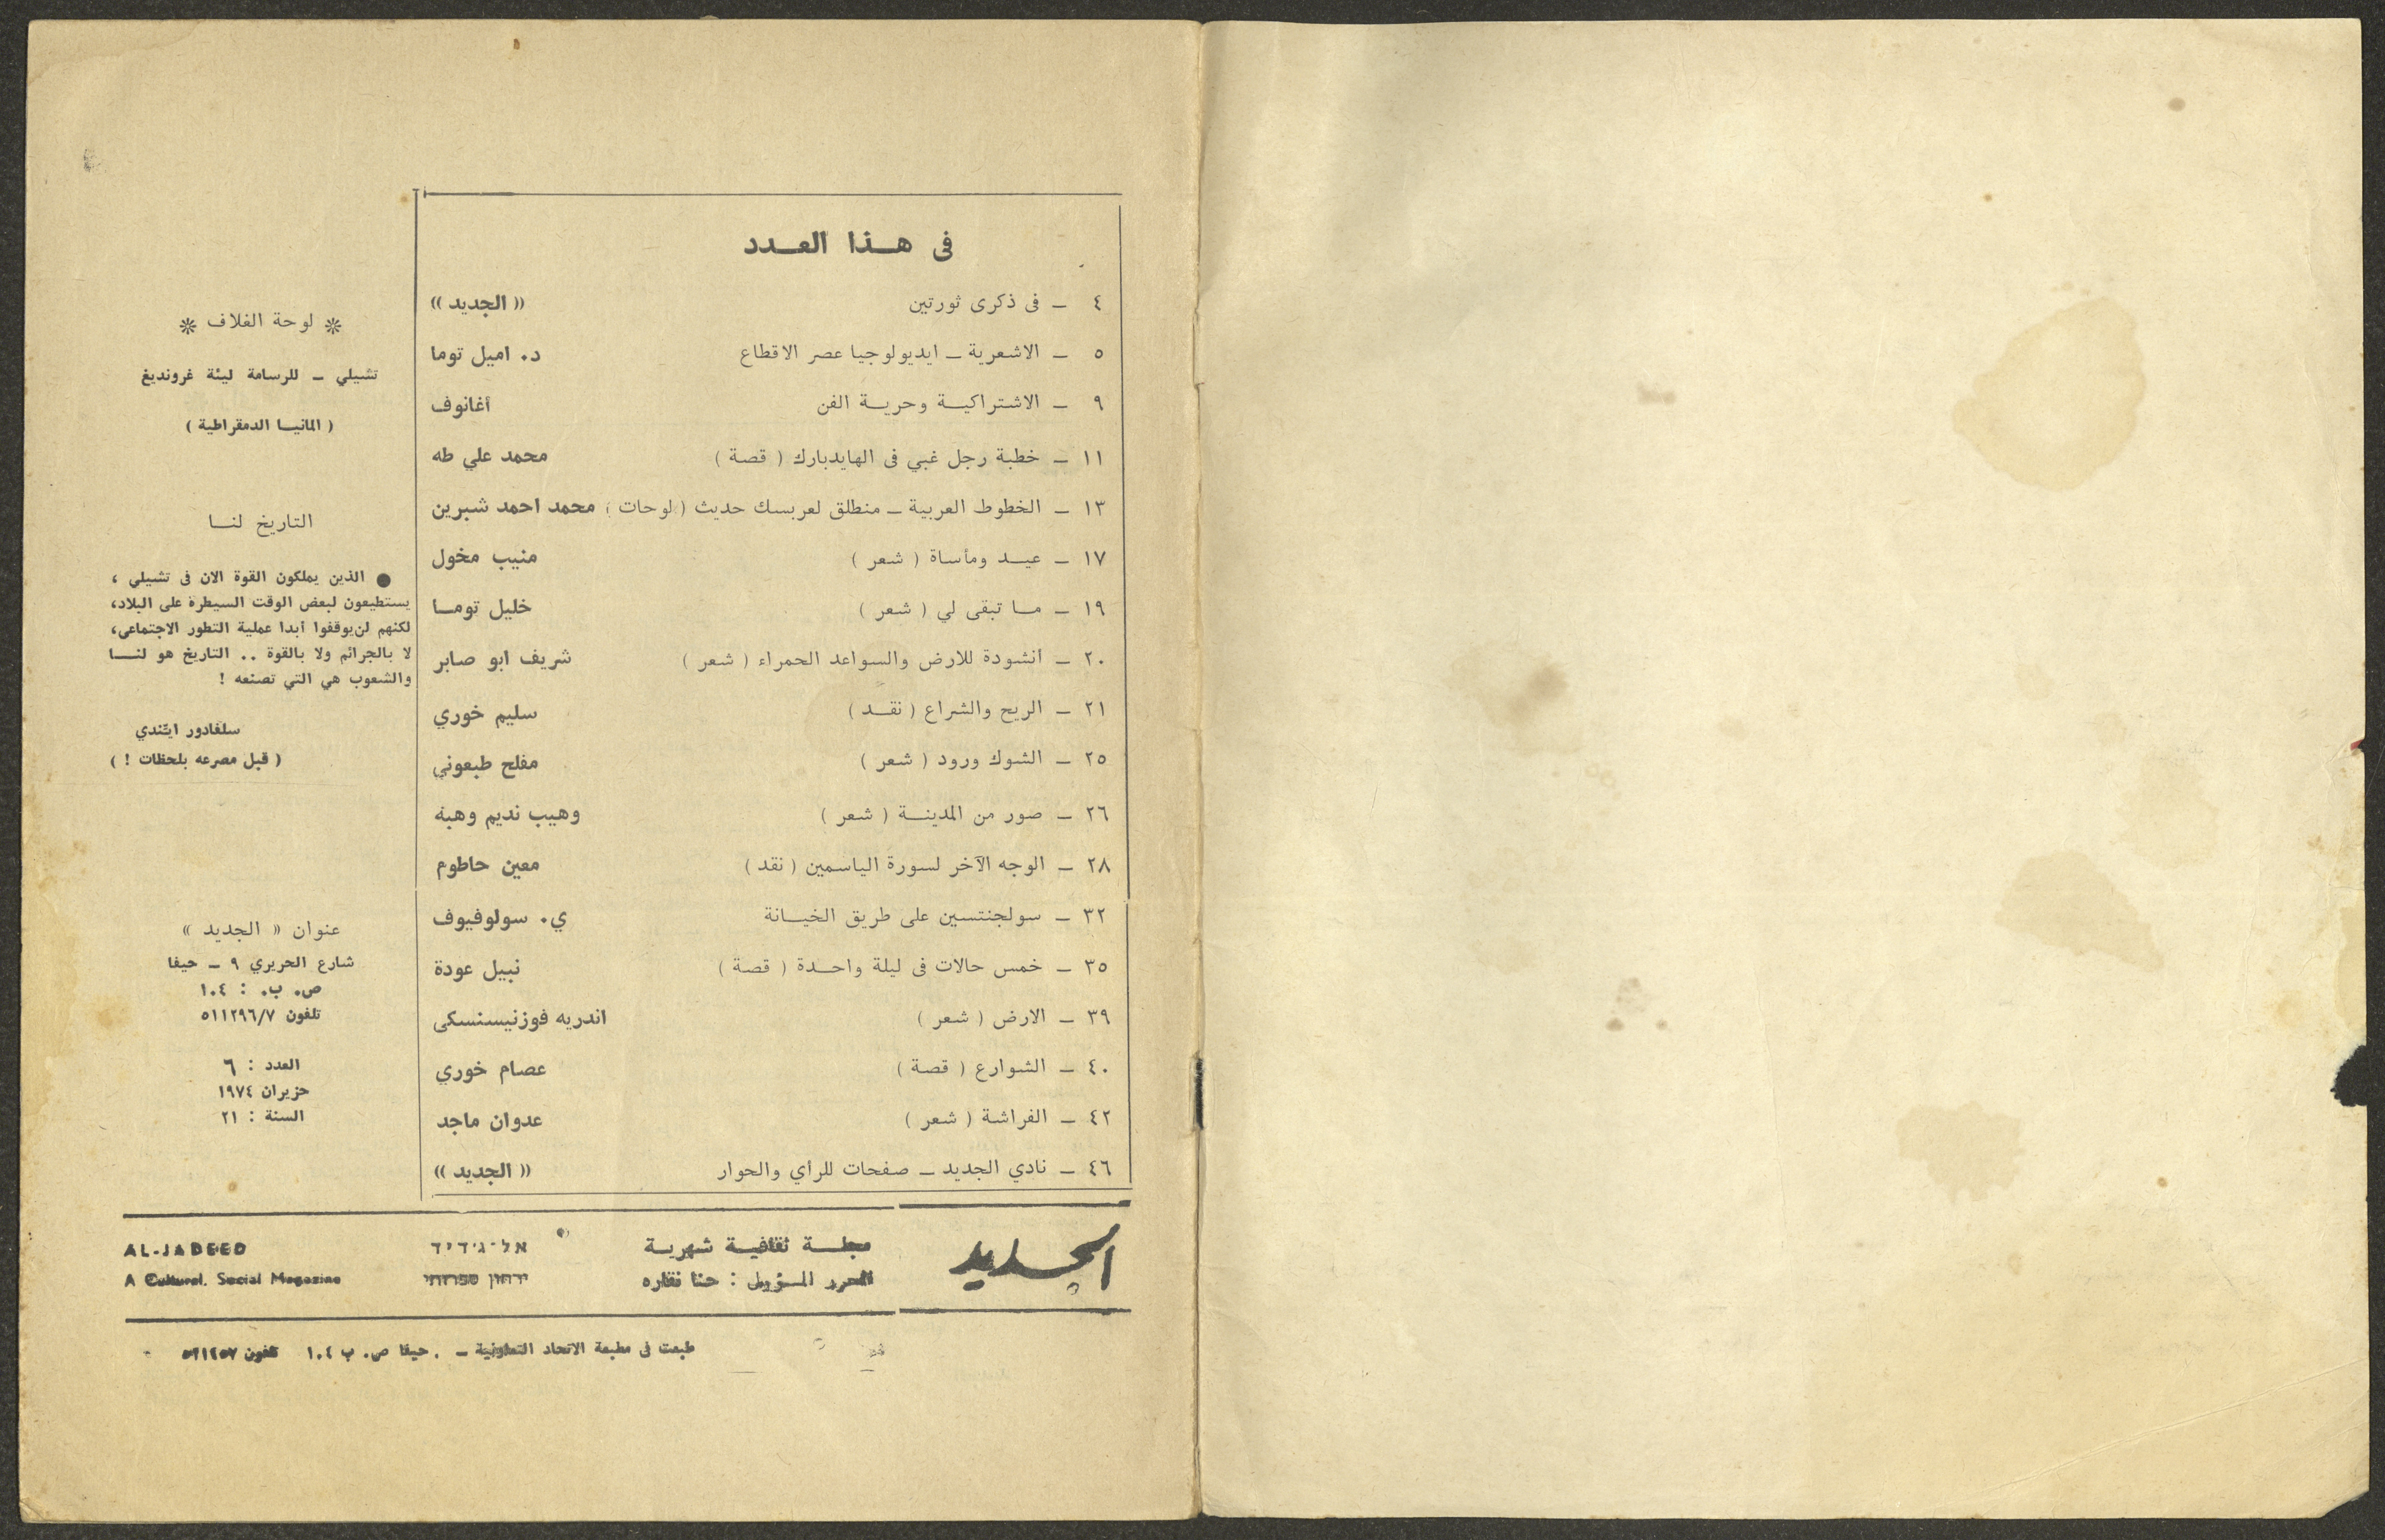 في هــذا العــدد
٤ – في ذكرى ثورتين « الجديد »
٥ – الاشعرية – ايديولوجيا عصر الاقطاع د. اميل توما
٩ – الاشتراكيــة وحريــة الفن أغانوف
١١ – خطبة رجل غبي في الهايدبارك ( قصة ) محمد علي طه
١٣ – الخطوط العربية – منطلق لعربسك حديث ( لوحات ) محمد احمد شبرين
١٧ – عيــد ومأساة ( شعر ) منيب مخول
١٩ – مــا تبقى لي ( شعر ) خليل تومــا
٢٠ – أنشودة للارض والسواعد الحمراء ( شعر ) شريف ابو صابر
٢١ – الريح والشراع ( نقــد ) سليم خوري
٢٥ – الشوك ورود ( شعر ) مفلح طبعوني
٢٦ – صور من المدينــة ( شعر ) وهيب نديم وهبة
٢٨ – الوجه الآخر لسورة الياسمين ( نقد ) معين حاطوم
٣٢ – سولجنتسين على طريق الخيــانة ي. سولوفيوف
٣٥ – خمس حالات في ليلة واحــدة ( قصة ) نبيل عودة
٣٩ – الارض ( شعر ) اندريه فوزنيسنسكي
٤٠ – الشوارع ( قصة ) عصام خوري
٤٢ – الفراشة ( شعر ) عدوان ماجد
٤٦ – نادي الجديد – صفحات للرأي والحوار « الجديد »
❊ لوحة الغلاف ❊
تشيلي – للرسامة ليئة غرونديغ
( المانيــا الدمقراطية )
التاريخ لنــا
● الذين يملكون القوة الان في تشيلي ،
يستطيعون لبعض الوقت السيطرة على البلاد،
لكنهم لن يوقفوا أبدا عملية التطور الاجتماعي،
لا بالجرائم ولا بالقوة .. التاريخ هو لنــــا
والشعوب هي التي تصنعه !
سلفادور ايّندي
( قبل مصرعه بلحظات ! )
عنوان « الجديد »
شارع الحريري ٩ – حيفا
ص. ب. : ١٠٤
تلفون ٥١١٢٩٦/٧
العدد : ٦
حزيران ١٩٧٤
السنة : ٢١
الجديد
مجلــة ثقافيــة شهريــة
المحرر المسؤول : حنا نقاره
אל-ג'דיד
ירחון ספרותי
AL-JADEED
A Cultural. Social Magazine
طبعت في مطبعة الاتحاد التعاونية – . حيفا ص. ب ١٠٤ تلفون